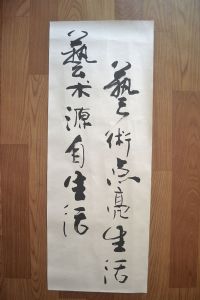 藝術点亮生活
藝术源自生活